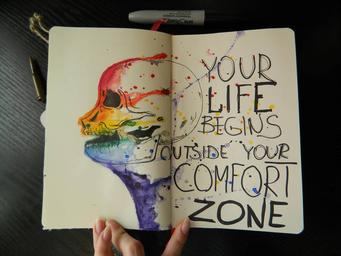 YOUR
LIFE
BEGINS
OUTSIDE YOUR
COMFORT
ZONE